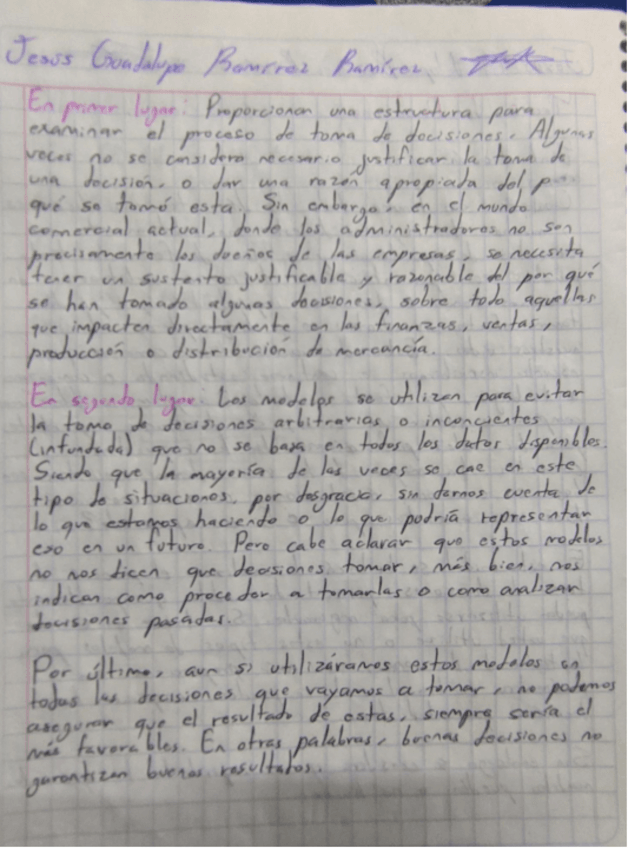 Jesus Guadalupe Ramírez Ramírez
En primer lugar: Proporcionan una estructura para
examinar el proceso de toma de decisiones. Algunas
veces no se considera necesario justificar la toma de
una decisión, o dar una razón apropiada del por
qué se tomó esta. Sin embargo, en el mundo
comercial actual, donde los administradores no son
precisamente los dueños de las empresas, se necesita
tener un sustento justificable y razonable del por qué
se han tomado algunas decisiones, sobre todo aquellas
que impacten directamente en las finanzas, ventas,
producción o distribución de mercancía.
En segundo lugar: Los modelos se utilizan para evitar
la toma de decisiones arbitrarias o inconcientes
(infundada) que no se basa en todos los datos disponibles.
Siendo que la mayoría de las veces se cae en este
tipo de situaciones, por desgracia, sin darnos cuenta de
lo que estamos haciendo o lo que podría representar
eso en un futuro. Pero cabe aclarar que estos modelos
no nos dicen que decisiones tomar, más bien, nos
indican como proceder a tomarlas o como analizar
decisiones pasadas.
Por último, aun si utilizáramos estos modelos en
todas las decisiones que vayamos a tomar, no podemos
asegurar que el resultado de estas, siempre sería el
más favorables. En otras palabras, buenas decisiones no
garantizan buenos resultados.